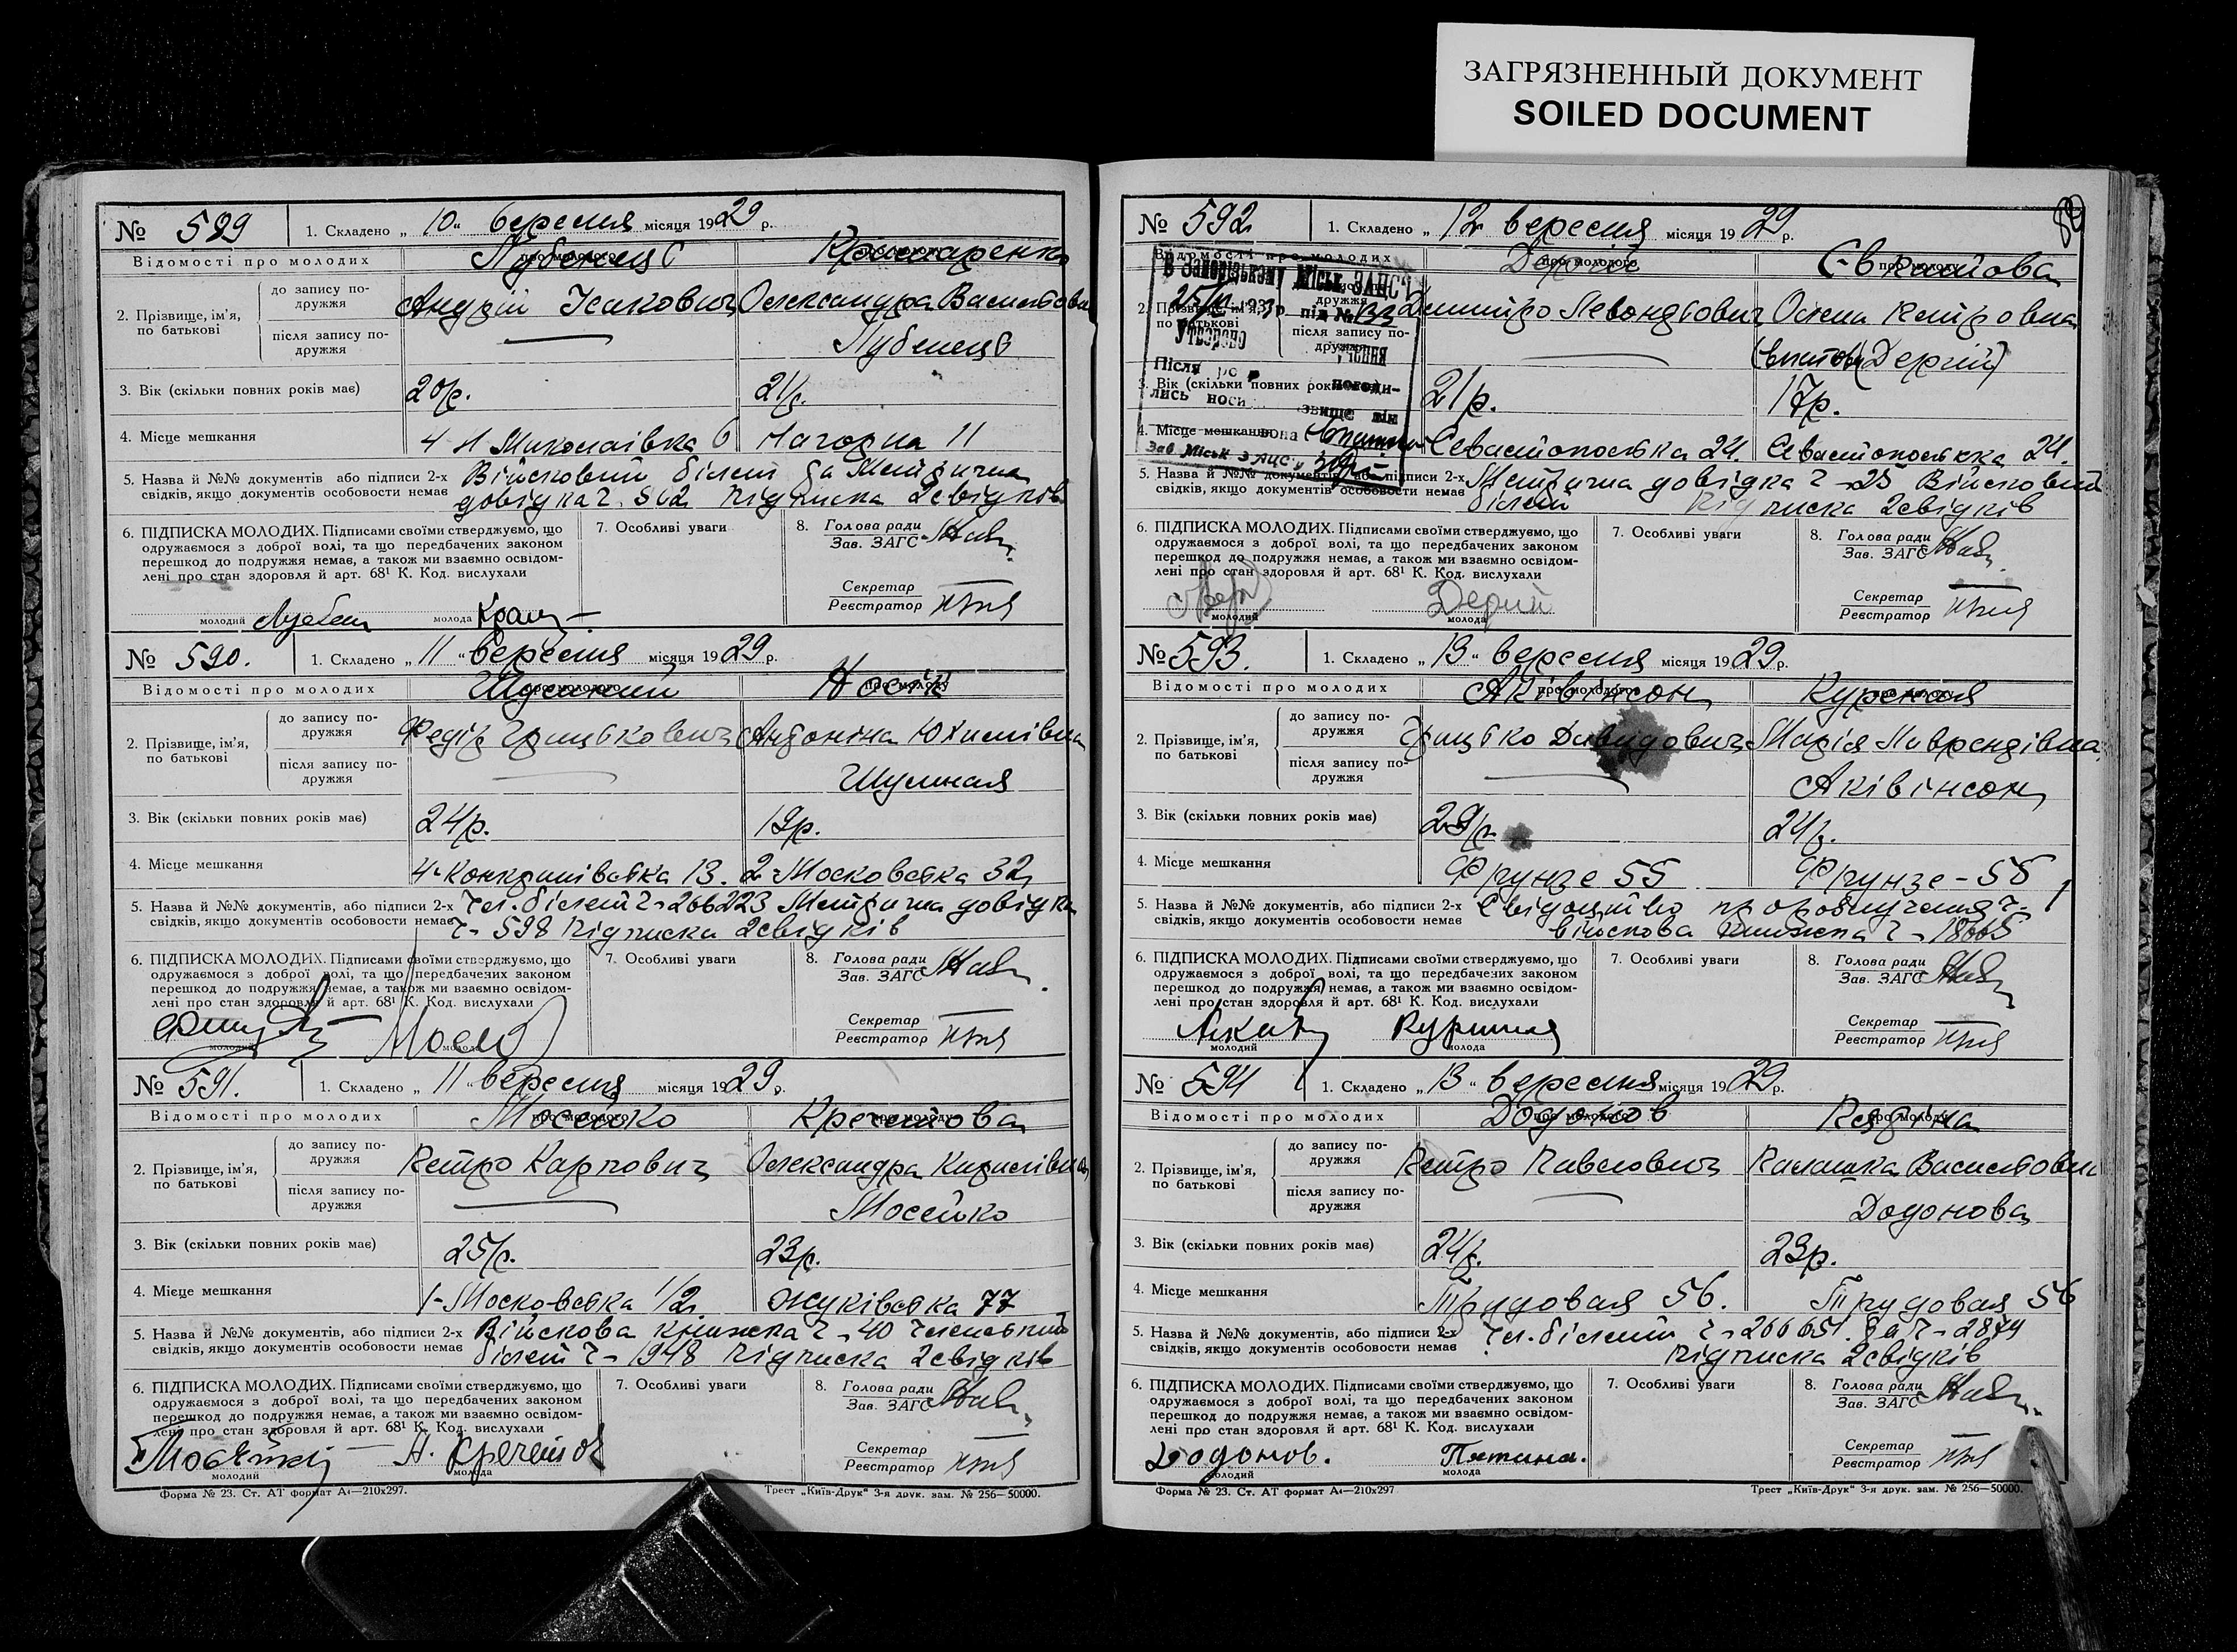 ЗАГРЯЗНЕННЫЙ ДОКУМЕНТ
SOILED DOCUMENT
№ 589 1. Складено „ 10 “ вересня місяця 1929 р.
Відомості про молодих про молодого про молоду
Лубенець
2. Прізвище, ім'я, по батькові
до запису подружжя Андрій Ісакович Олександра Василівна
після запису подружжя — Лубенець
3. Вік (скільки повних років має) 20 р. 21 р.
4. Місце мешкання 4 Н Миколаівка 6 Нагорна 11
5. Назва й №№ документів або підписи 2-х Військовий білет та Метрична
свідків, якщо документів особовости немає довідка ч. 502 підписка 2 свідків
6. ПІДПИСКА МОЛОДИХ. Підписами своїми стверджуємо, що
одружаємося з доброї волі, та що передбачених законом
перешкод до подружжя немає, а також ми взаємно освідом-
лені про стан здоровля й арт. 68¹ К. Код. вислухали
молодий молода
7. Особливі уваги
8. Голова ради
Зав. ЗАГС
Секретар
Реєстратор
№ 590. 1. Складено „ 11 “ вересня місяця 1929 р.
Відомості про молодих про молодого про молоду
Носік
2. Прізвище, ім'я, по батькові
до запису подружжя Федір Грицькович Антоніна Юхимівна
після запису подружжя — Шумная
3. Вік (скільки повних років має) 24 р. 19 р.
4. Місце мешкання 2 Московська 32
5. Назва й №№ документів, або підписи 2-х Чл. білет ч - 266223 Метрична довідка
свідків, якщо документів особовости немає ч - 598 підписка 2 свідків
6. ПІДПИСКА МОЛОДИХ. Підписами своїми стверджуємо, що
одружаємося з доброї волі, та що передбачених законом
перешкод до подружжя немає, а також ми взаємно освідом-
лені про стан здоровля й арт. 68¹ К. Код. вислухали
молодий молода
7. Особливі уваги
8. Голова ради
Зав. ЗАГС
Секретар
Реєстратор
№ 591. 1. Складено „ 11 “ вересня місяця 1929 р.
Відомості про молодих про молодого про молоду
Мосейко Кречетова
2. Прізвище, ім'я, по батькові
до запису подружжя Петро Карпович Олександра Кирилівна
після запису подружжя — Мосейко
3. Вік (скільки повних років має) 25 р. 23 р.
4. Місце мешкання 1 - Московська 1/2 Жуківська 77
5. Назва й №№ документів, або підписи 2-х Війскова книжка ч - 40 членський
свідків, якщо документів особовости немає білет ч - 1948 підписка 2 свідків
6. ПІДПИСКА МОЛОДИХ. Підписами своїми стверджуємо, що
одружаємося з доброї волі, та що передбачених законом
перешкод до подружжя немає, а також ми взаємно освідом-
лені про стан здоровля й арт. 68¹ К. Код. вислухали
молодий молода
А. Кречетов
7. Особливі уваги
8. Голова ради
Зав. ЗАГС
Секретар
Реєстратор
Форма № 23. Ст. АТ формат А4—210х297. Трест „Київ-Друк“ 3-я друк. зам. № 256—50000.
№ 592 1. Складено „ 12 вересня місяця 1929 р.
Відомості про молодих про молодого про молоду
В Запорізькому МІСЬК ЗАГС'і
під №
Утворено
Після погоди-
лись носи звище він
вона
Зав Міськ ЗАГС'у
2. Прізвище, ім'я, по батькові
до запису подружжя Димитро Левондович Олена Петровна
після запису подружжя — (Дерій)
3. Вік (скільки повних років має) 21 р. 17 р.
4. Місце мешкання Севастопольська 24. Севастопольська 24.
5. Назва й №№ документів, або підписи 2-х Метрична довідка ч - 25 Військовий
свідків, якщо документів особовости немає білет підписка 2 свідків
6. ПІДПИСКА МОЛОДИХ. Підписами своїми стверджуємо, що
одружаємося з доброї волі, та що передбачених законом
перешкод до подружжя немає, а також ми взаємно освідом-
лені про стан здоровля й арт. 68¹ К. Код. вислухали
молодий молода
Дерий
7. Особливі уваги
8. Голова ради
Зав. ЗАГС
Секретар
Реєстратор
№ 593. 1. Складено „ 13 “ вересня місяця 1929 р.
Відомості про молодих про молодого про молоду
Аківінсон
2. Прізвище, ім'я, по батькові
до запису подружжя Грицько Давидович Марія Лаврендівна
після запису подружжя — Аківінсон
3. Вік (скільки повних років має) 29 р. 24 р.
4. Місце мешкання Фрунзе 55 Фрунзе - 55
5. Назва й №№ документів, або підписи 2-х Свідоцтво про розлучення ч -
свідків, якщо документів особовости немає військова книжка ч - 18665
6. ПІДПИСКА МОЛОДИХ. Підписами своїми стверджуємо, що
одружаємося з доброї волі, та що передбачених законом
перешкод до подружжя немає, а також ми взаємно освідом-
лені про стан здоровля й арт. 68¹ К. Код. вислухали
молодий молода
7. Особливі уваги
8. Голова ради
Зав. ЗАГС
Секретар
Реєстратор
№ 594 1. Складено „ 13 “ вересня місяця 1929 р.
Відомості про молодих про молодого про молоду
Додонов
2. Прізвище, ім'я, по батькові
до запису подружжя Петро Павлович Василівна
після запису подружжя — Додонова
3. Вік (скільки повних років має) 24 р. 23 р.
4. Місце мешкання Трудовая 56. Трудовая 56
5. Назва й №№ документів, або підписи 2-х Чл. білет ч - 266651. за ч - 2874
свідків, якщо документів особовости немає підписка 2 свідків
6. ПІДПИСКА МОЛОДИХ. Підписами своїми стверджуємо, що
одружаємося з доброї волі, та що передбачених законом
перешкод до подружжя немає, а також ми взаємно освідом-
лені про стан здоровля й арт. 68¹ К. Код. вислухали
Додонов. Пятина.
молодий молода
7. Особливі уваги
8. Голова ради
Зав. ЗАГС
Секретар
Реєстратор
Форма № 23. Ст. АТ формат А4—210х297 Трест „Київ-Друк“ 3-я друк. зам. № 256—50000.